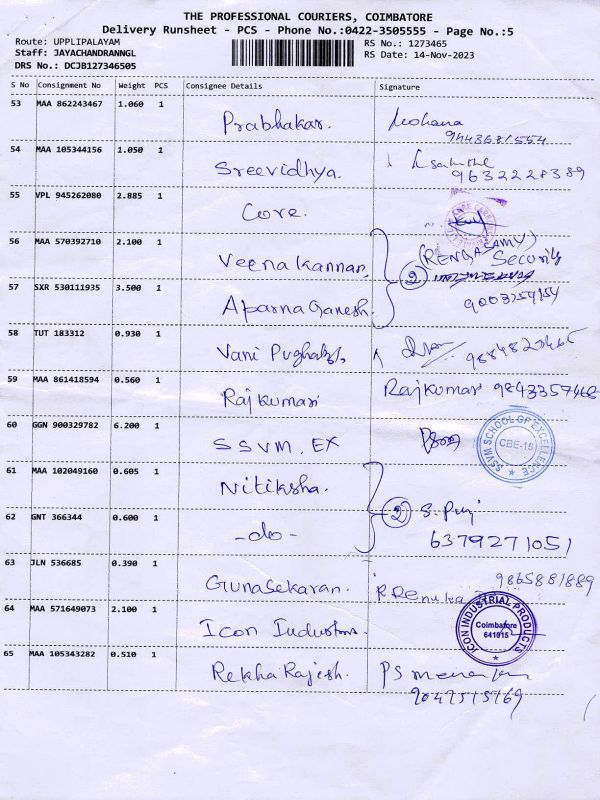 THE PROFESSIONAL COURIERS, COIMBATORE
Delivery Runsheet - PCS - Phone No.:0422-3505555 - Page No.:5
Route: UPPLIPALAYAM
Staff: JAYACHANDRANNGL
DRS No.: DCJB127346505
RS No.: 1273465
RS Date: 14-Nov-2023
S No Consignment No Weight PCS Consignee Details Signature
53 MAA 862243467 1.060 1 Prabhakar. Mohana
9443681554
54 MAA 105344156 1.050 1 Sreevidhya.
9632228389
55 VPL 945262080 2.885 1 Core.
56 MAA 570392710 2.100 1 Veena Kannan. (RENGASAMY)
Security
57 SXR 530111935 3.500 1 Aparna Ganesh. 2
9003259154
58 TUT 183312 0.930 1 Vani
9884823465
59 MAA 861418594 0.560 1 Rajkumar Rajkumar 9843357468
60 GGN 900329782 6.200 1 SSVM. EX
SSVM SCHOOL OF EXCELLENCE
CBE-15
61 MAA 102049160 0.605 1 Nitiksha.
62 GNT 366344 0.600 1 -do- 2 S.
6379271051
63 JLN 536685 0.390 1 Gunasekaran. R Renuka
9865881889
64 MAA 571649073 2.100 1 Icon
ICON INDUSTRIAL PRODUCTS
Coimbatore
641015
65 MAA 105343282 0.510 1 Rekha Rajesh. PS
9047515769